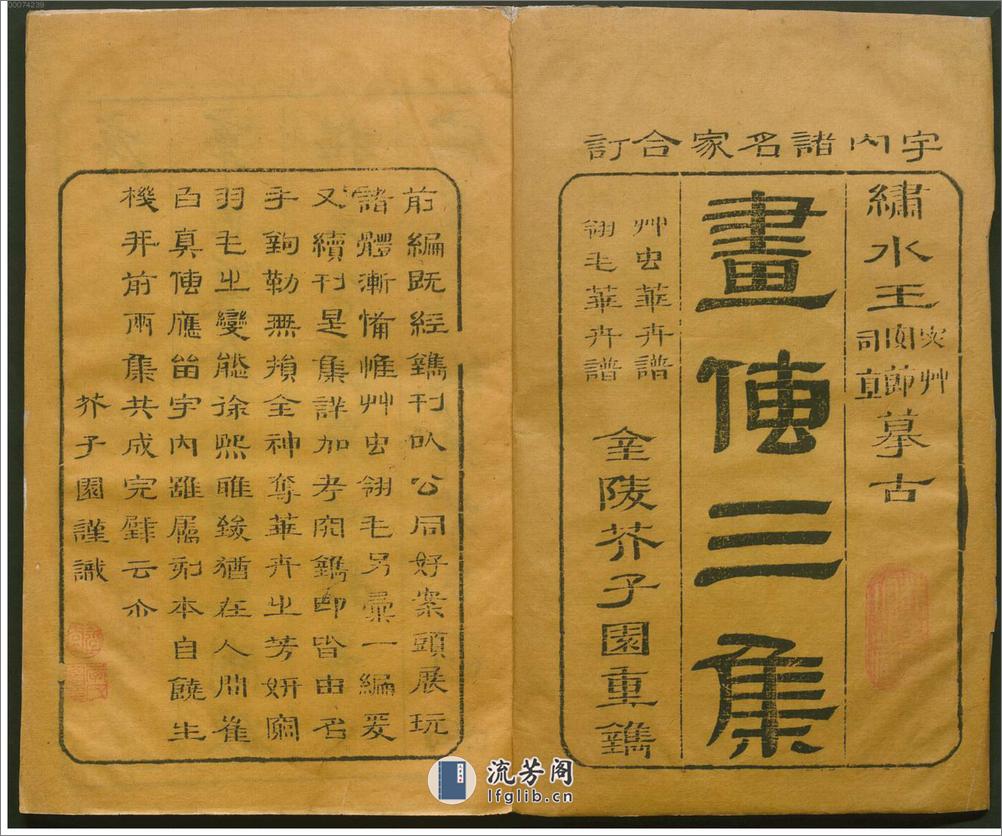 00074239
宇内諸名家合訂
繡水王宓艸 安節 司直摹古
畫傳三集
艸虫華卉譜
翎毛華卉譜
金陵芥子園重鐫
前編既經鐫刊以公同好案頭展玩
諸體漸備惟艸虫翎毛另彙一編爰
又續刊是集詳加考究鐫印皆由名
手鉤勒無損全神奪華卉之芳妍窮
羽毛之變態徐熙睢鋑猶在人間崔
白真傳應留宇内雖屬剞本自饒生
機幷前兩集共成完辟云尒
芥子園謹識
流芳阁
lfglib.cn